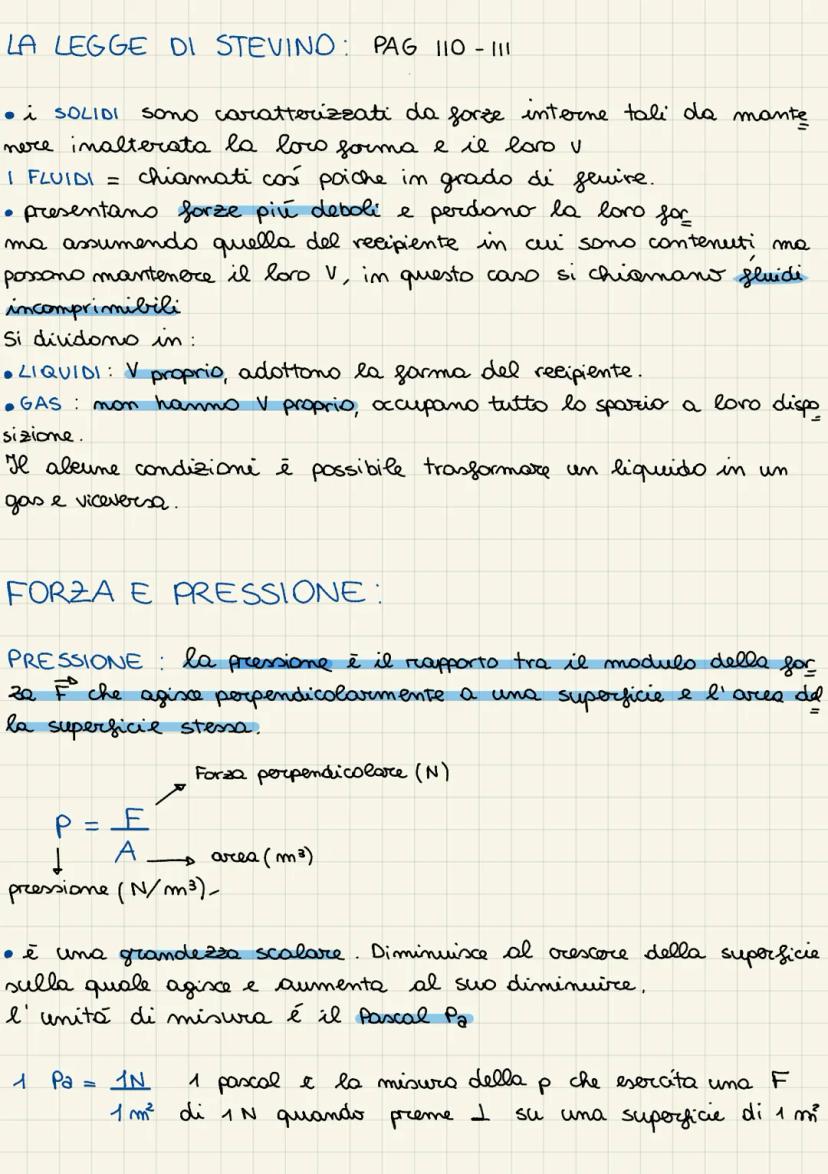 LA LEGGE DI STEVINO: PAG 110 - 111
• i SOLIDI sono caratterizzati da forze interne tali da mante
nere inalterata la loro forma e il loro V
I FLUIDI = chiamati così poiche in grado di fluire.
• presentano forze più deboli e perdono la loro for
ma assumendo quella del recipiente in cui sono contenuti ma
possono mantenere il loro V, in questo caso si chiamano fluidi
incomprimibili
Si dividono in:
• LIQUIDI: V proprio, adottono la forma del recipiente.
• GAS: non hanno V proprio, occupano tutto lo spazio a loro dispo
sizione.
Il alcune condizioni è possibile trasformare un liquido in un
gas e viceversa.
FORZA E PRESSIONE:
PRESSIONE: la pressione è il rapporto tra il modulo della for
za F che agisce perpendicolarmente a una superficie e l'area del
la superficie stessa.
Forza perpendicolare (N)
P = F
A → area (m³)
pressione (N/m³)
• è una grandezza scalare. Diminuisce al crescere della superficie
sulla quale agisce e aumenta al suo diminuire.
l'unità di misura é il Pascal Pa
1 Pa = 1N 1 pascal e la misura della p che esercita una F
1 m² di 1 N quando preme ⊥ su una superficie di 1 m²